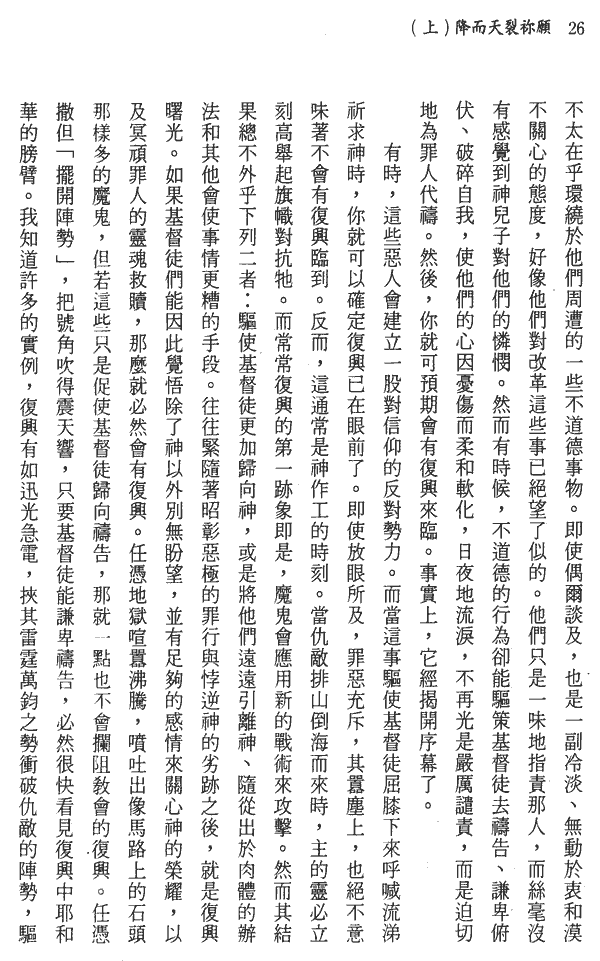 26 願祢裂天而降（上）
不太在乎環繞於他們周遭的一些不道德事物。即使偶爾談及，也是一副冷淡、無動於衷和漠
不關心的態度，好像他們對改革這些事已絕望了似的。他們只是一味地指責那人，而絲毫沒
有感覺到神兒子對他們的憐憫。然而有時候，不道德的行為卻能驅策基督徒去禱告、謙卑俯
伏、破碎自我，使他們的心因憂傷而柔和軟化，日夜地流淚，不再光是嚴厲譴責，而是迫切
地為罪人代禱。然後，你就可預期會有復興來臨。事實上，它經揭開序幕了。
有時，這些惡人會建立一股對信仰的反對勢力。而當這事驅使基督徒屈膝下來呼喊流涕
祈求神時，你就可以確定復興已在眼前了。即使放眼所及，罪惡充斥，其囂塵上，也絕不意
味著不會有復興臨到。反而，這通常是神作工的時刻。當仇敵排山倒海而來時，主的靈必立
刻高舉起旗幟對抗牠。而常常復興的第一跡象即是，魔鬼會應用新的戰術來攻擊。然而其結
果總不外乎下列二者：驅使基督徒更加歸向神，或是將他們遠遠引離神、隨從出於肉體的辦
法和其他會使事情更糟的手段。往往緊隨著昭彰惡極的罪行與悖逆神的劣跡之後，就是復興
曙光。如果基督徒們能因此覺悟除了神以外別無盼望，並有足夠的感情來關心神的榮耀，以
及冥頑罪人的靈魂救贖，那麼就必然會有復興。任憑地獄喧囂沸騰，噴吐出像馬路上的石頭
那樣多的魔鬼，但若這些只是促使基督徒歸向禱告，那就一點也不會攔阻教會的復興。任憑
撒但「擺開陣勢」，把號角吹得震天響，只要基督徒能謙卑禱告，必然很快看見復興中耶和
華的膀臂。我知道許多的實例，復興有如迅光急電，挾其雷霆萬鈞之勢衝破仇敵的陣勢，驅